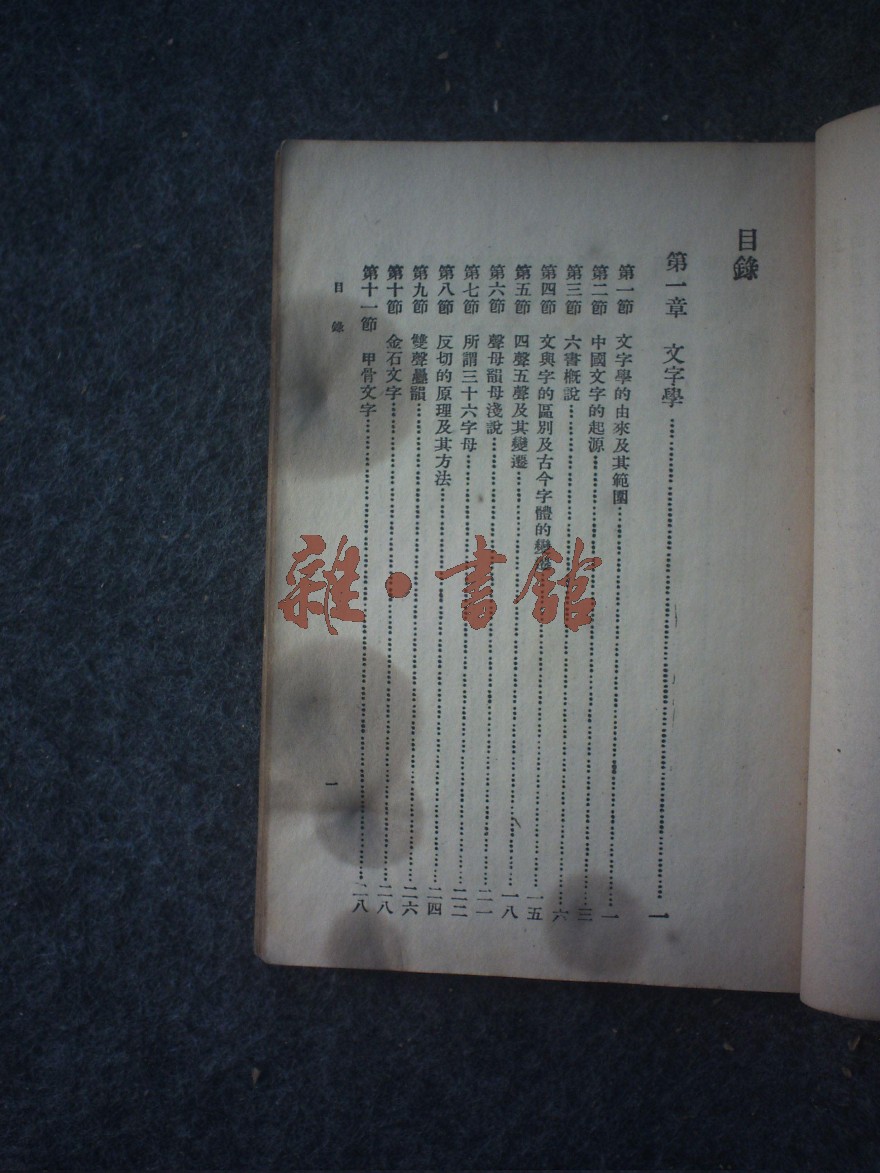 目錄
第一章　文字學……一
第一節　文字學的由來及其範圍……一
第二節　中國文字的起源……三
第三節　六書概說……六
第四節　文與字的區別及古今字體的變遷……一五
第五節　四聲五聲及其變遷……一八
第六節　聲母韻母淺說……二一
第七節　所謂三十六字母……二二
第八節　反切的原理及其方法……二四
第九節　雙聲疊韻……二六
第十節　金石文字……二八
第十一節　甲骨文字……二八
目錄
一
雜·書館